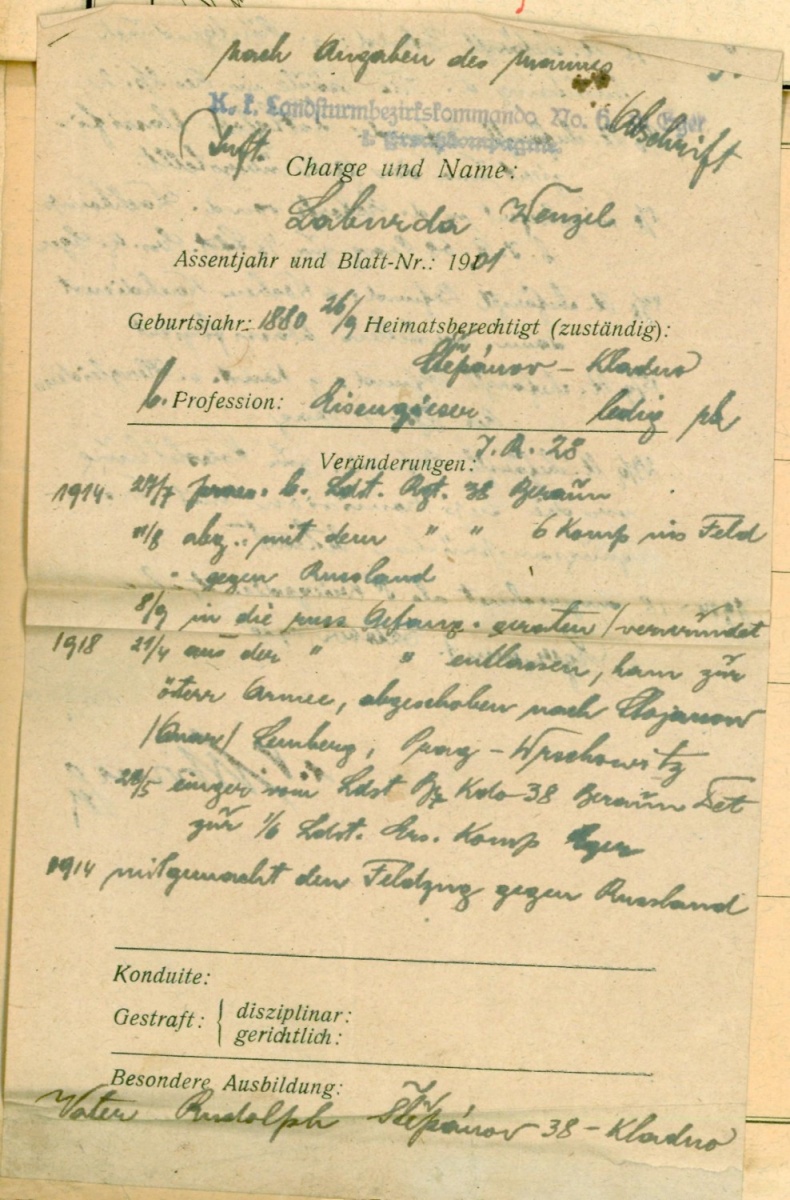 nach Angaben des Mannes
K. k. Landsturmbezirkskommando No. 6 Eger
Abschrift
Inft.
Charge und Name:
Laburda Wenzel
Assentjahr und Blatt-Nr.: 1901
Geburtsjahr: 1880 26/9 Heimatsberechtigt (zuständig):
Štěpánov - Kladno
b. Profession: Eisengiesser ledig
J. R. 28
Veränderungen:
1914 27/7 praes. b. Ldst. Rgt. 38 Beraun
11/8 abg. mit dem " " 6 Komp ins Feld
gegen Russland
8/9 in die russ Gefang. geraten / verwundet
1918 21/4 aus der " " entlassen, kam zur
österr Armee, abgeschoben nach Stojanow
Lemberg, Prag - Wrschowitz
28/5 einger vom Ldst Bz Kdo 38 Beraun Det
zur 1/6 Ldst. Ers. Komp Eger
1914 mitgemacht den Feldzug gegen Russland
Konduite:
Gestraft: { disziplinar:
gerichtlich:
Besondere Ausbildung:
Vater Rudolph Štěpánov 38 - Kladno